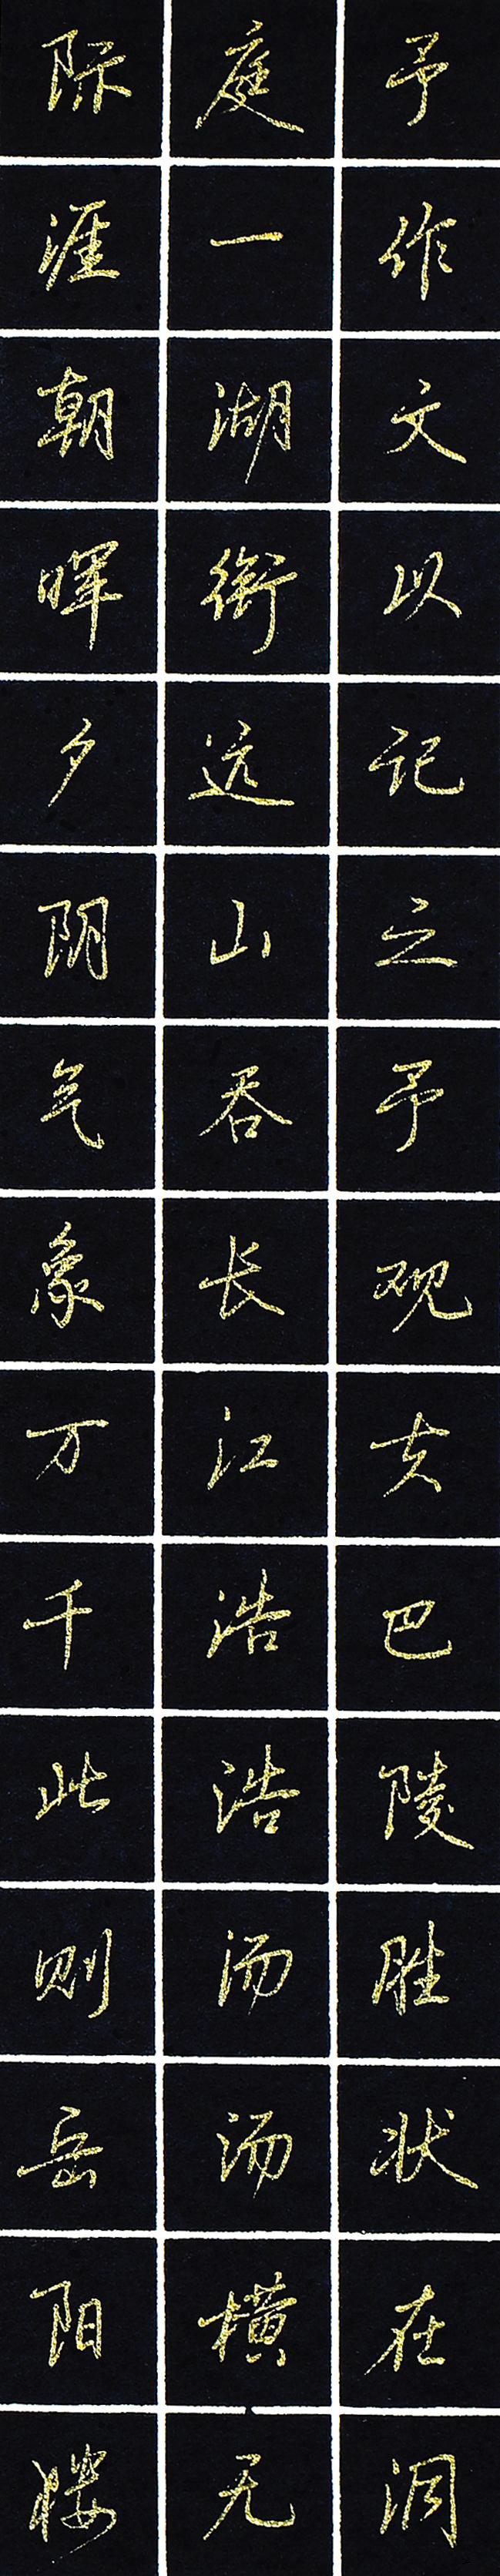 予作文以记之予观夫巴陵胜状在洞
庭一湖衔远山吞长江浩浩汤汤横无
际涯朝晖夕阴气象万千此则岳阳楼